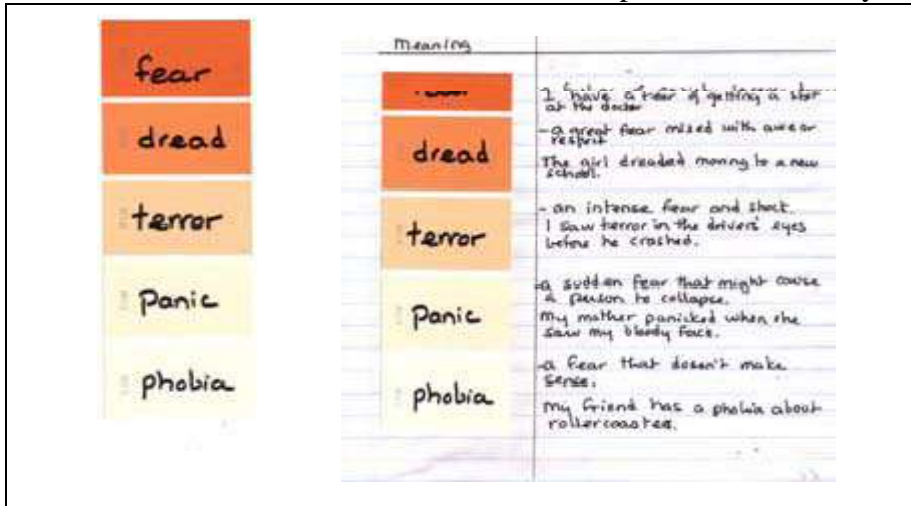 fear
dread
terror
Panic
phobia
Meaning
I have a fear of getting a shot
at the doctor
dread
- a great fear mixed with awe or
respect
The girl dreaded moving to a new
school.
terror
- an intense fear and shock.
I saw terror in the drivers' eyes
before he crashed.
Panic
- a sudden fear that might cause
a person to collapse.
My mother panicked when she
saw my bloody face.
phobia
- a fear that doesn't make
sense.
My friend has a phobia about